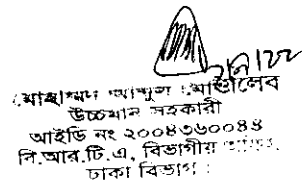 মোহাম্মদ আব্দুল মোত্তালেব
উচ্চমান সহকারী
আইডি নং ২০০৪৩৬০০৪৪
বি.আর.টি.এ, বিভাগীয়
ঢাকা বিভাগ।